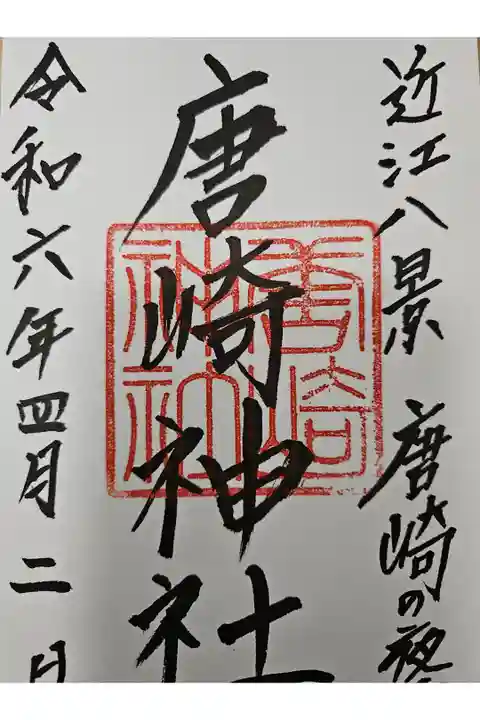 近江八景 唐崎の夜
唐崎神社
唐崎神社
令和六年四月二日